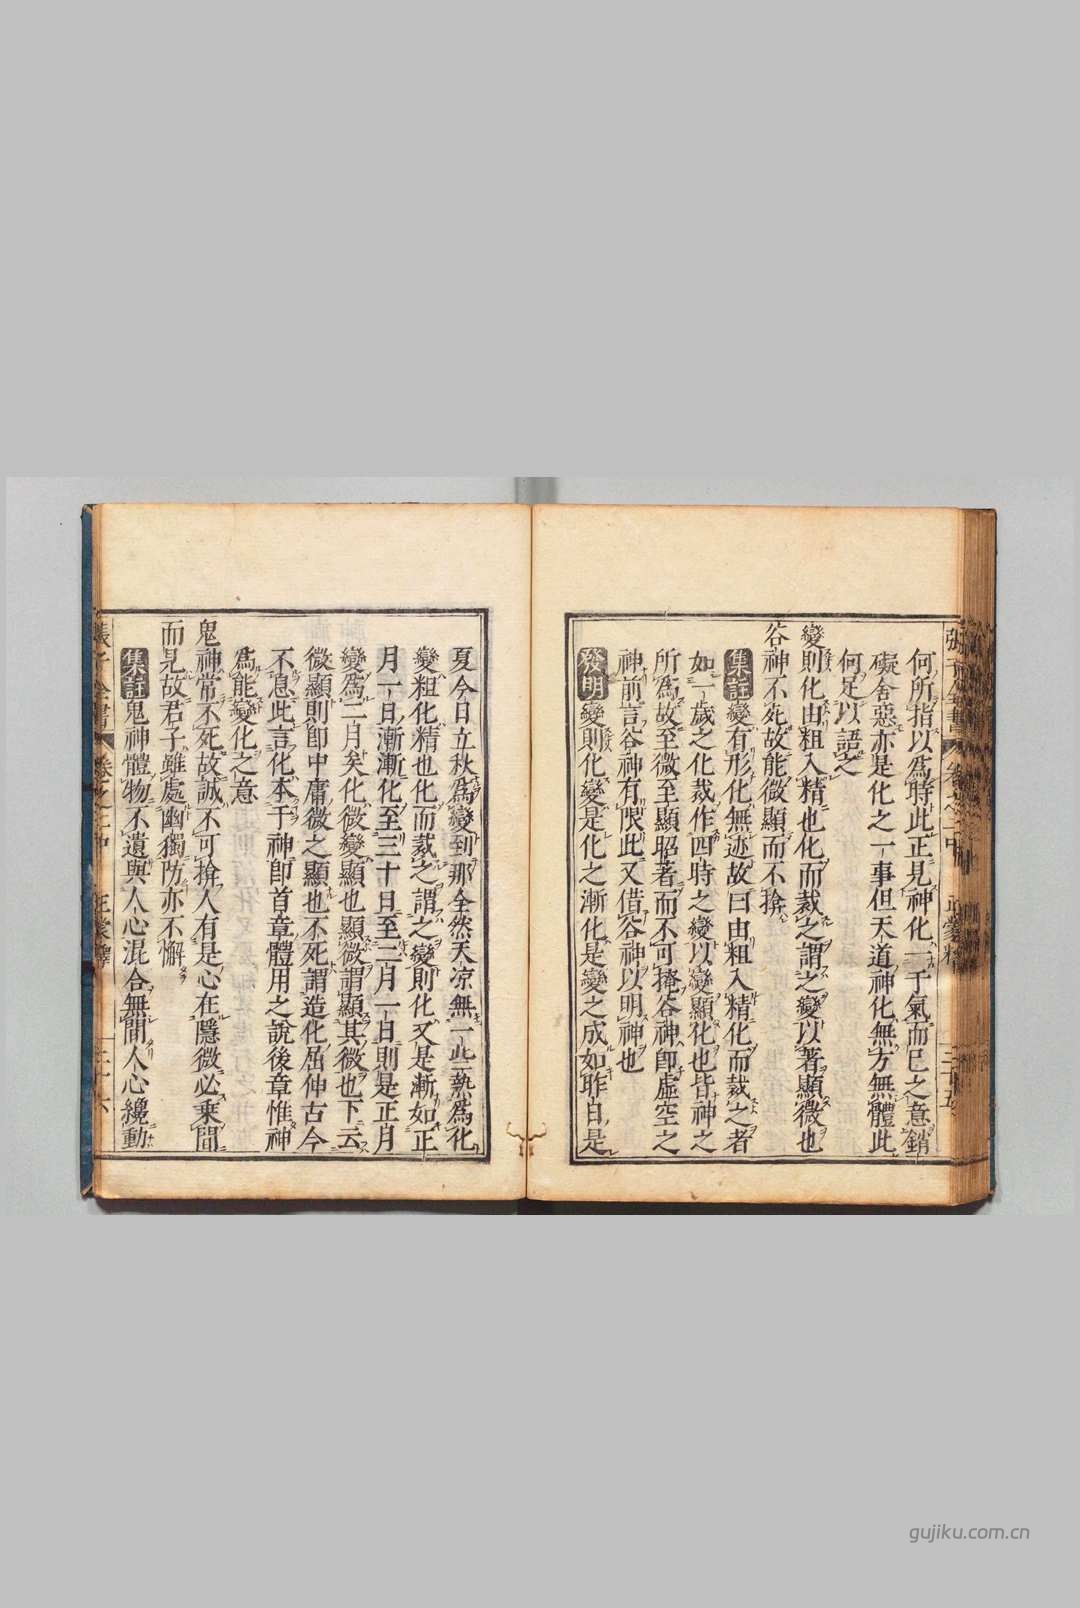 何所指以為時此正見神化一于氣而已之意銷
礙舍惡亦是化之一事但天道神化無方無體此
何足以語之
變則化由粗入精也化而裁之謂之變以著顯微也
谷神不死故能微顯而不揜
集註變有形化無迹故曰由粗入精化而裁之者
如一歲之化裁作四時之變以變顯化也皆神之
所為故至微至顯昭著而不可掩谷神即虛空之
神前言谷神有限此又借谷神以明神也
發明變則化變是化之漸化是變之成如昨日是
夏今日立秋為變到那全然天凉無一些熱為化
變粗化精也化而裁之謂之變則化又是漸如正
月一日漸漸化至三十日至二月一日則是正月
變為二月矣化微變顯也顯微謂顯其微也下云
微顯則即中庸微之顯也不死謂造化屈伸古今
不息此言化本于神即首章體用之說後章惟神
為能變化之意
鬼神常不死故誠不可揜人有是心在隱微必乘間
而見故君子雖處幽獨防亦不懈
集註鬼神體物不遺與人心混合無間人心纔動
張子全書 卷之二中 正蒙釋 二十六
gujiku.com.cn